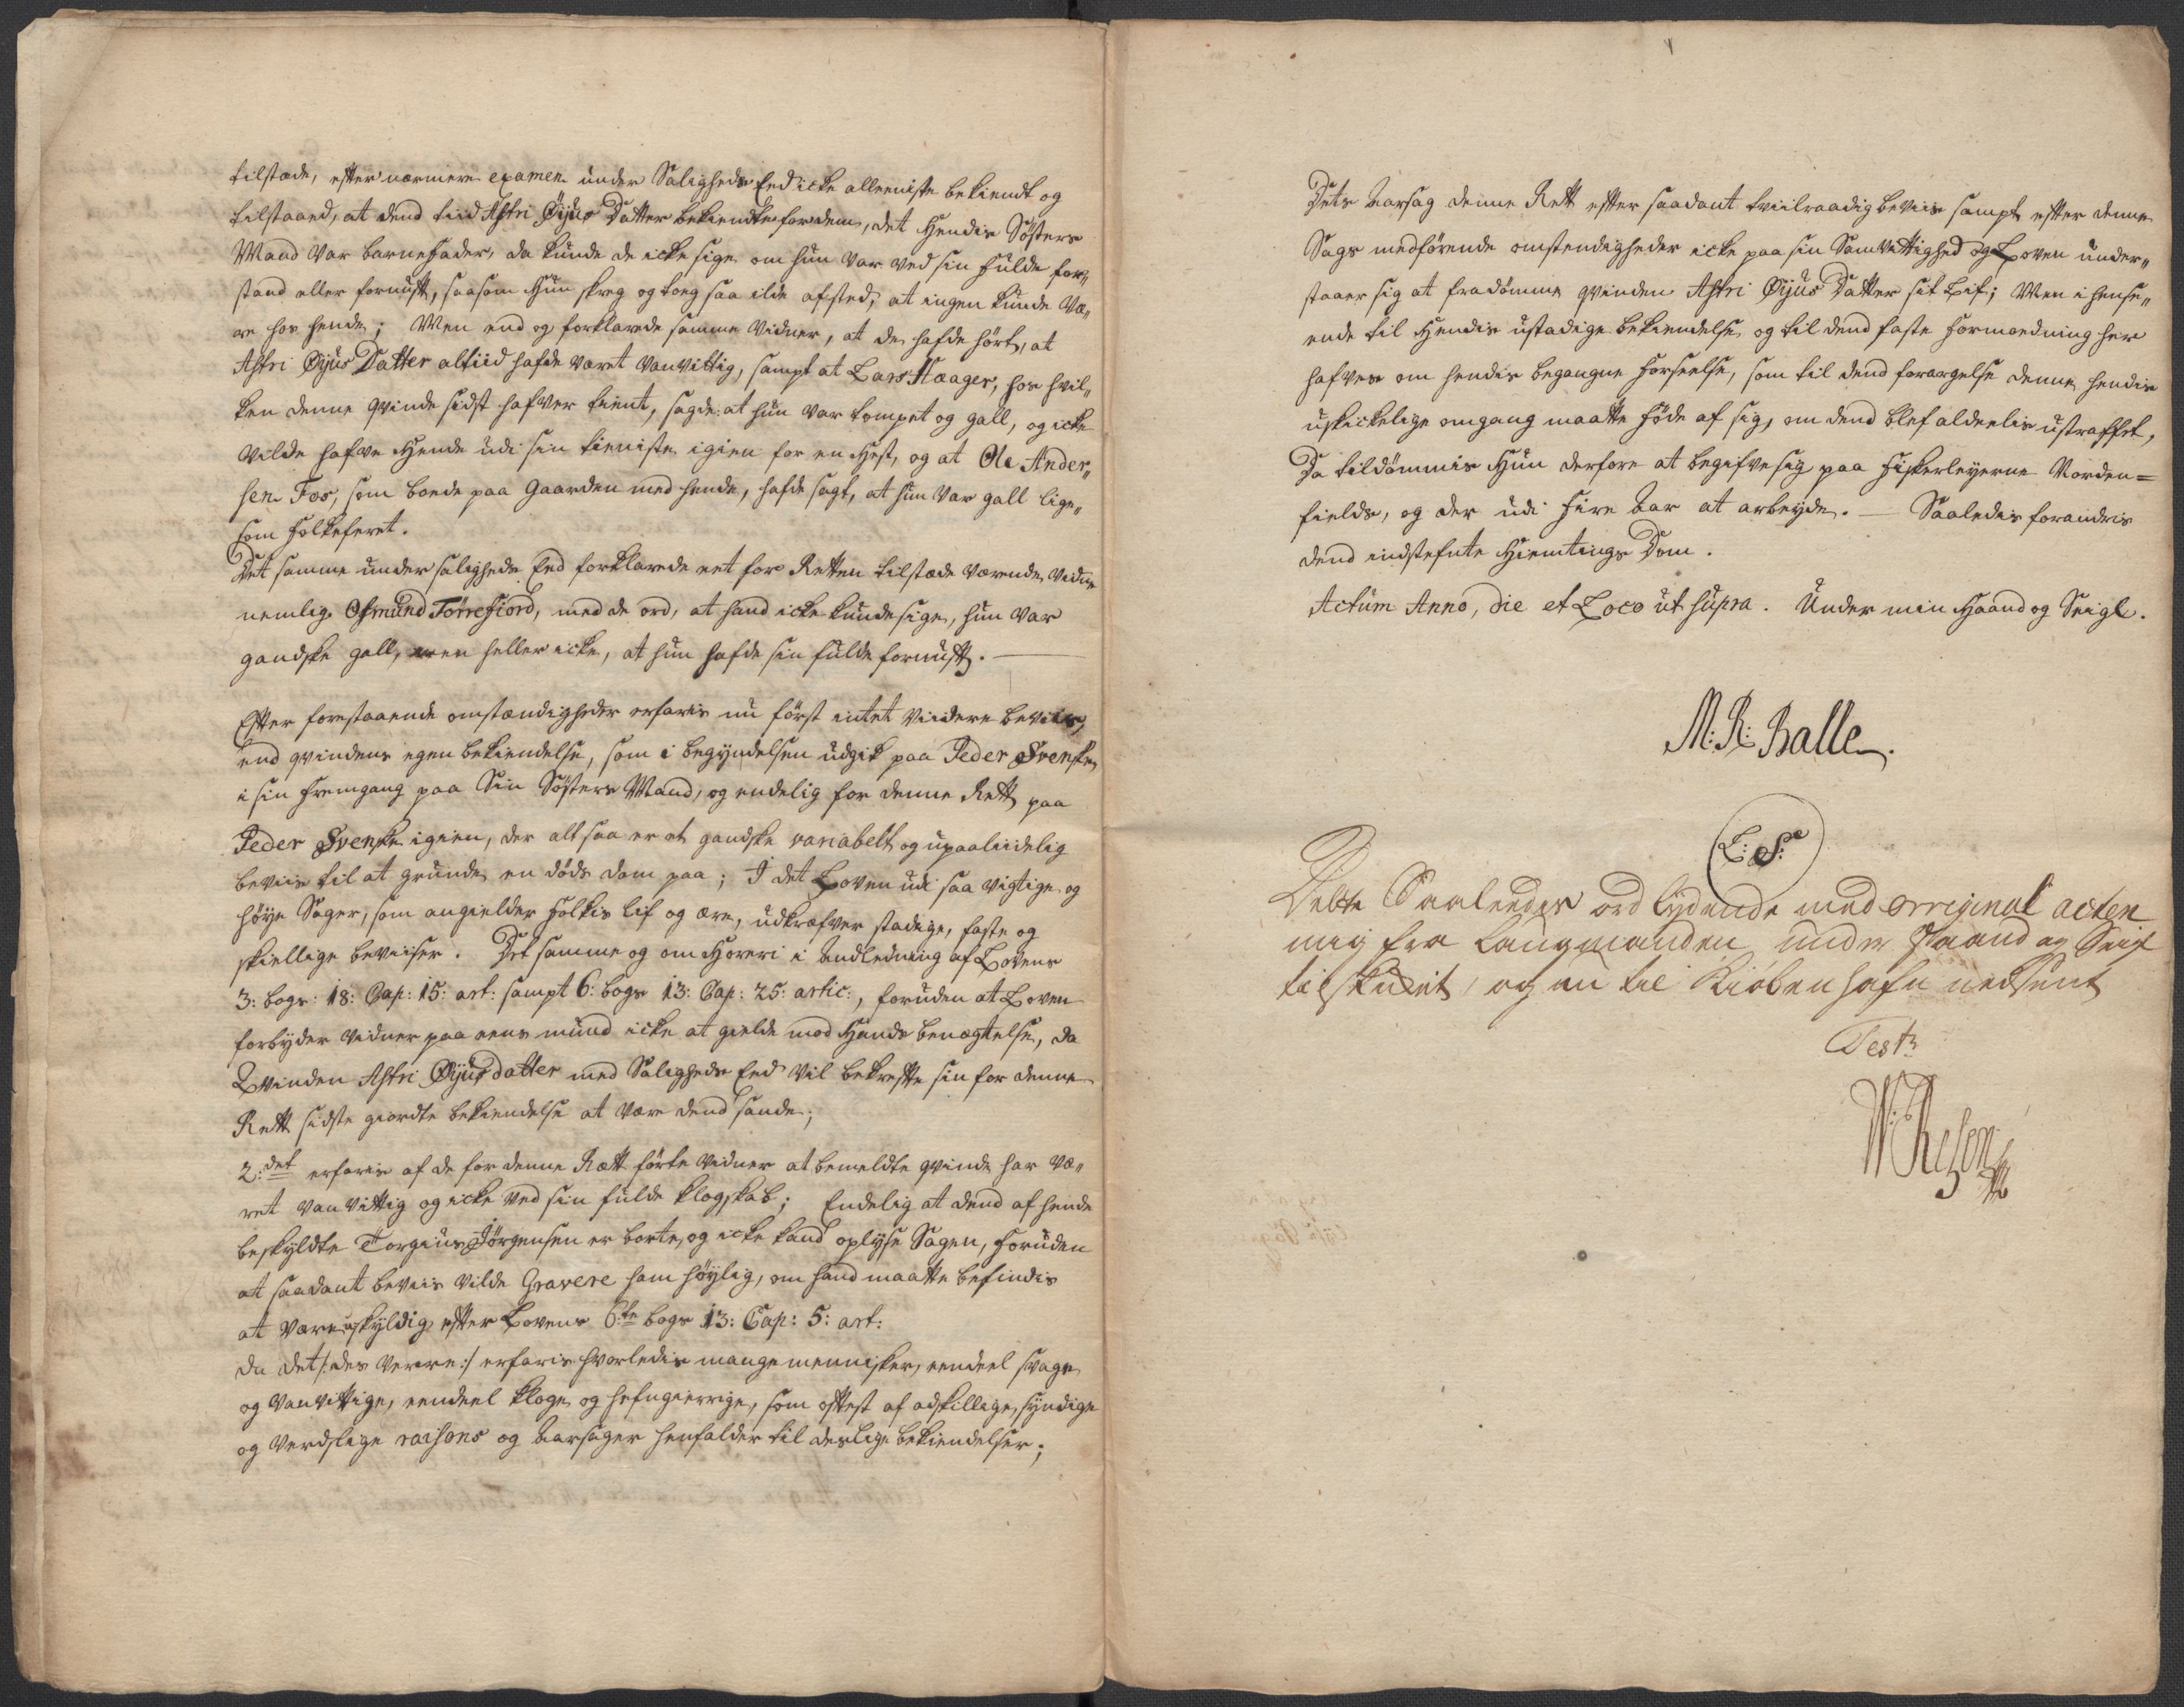 tilstæde, efter nærmere examen under Saligheds Eed icke alleeniste bekiendt og
tilstaaed, at dend tiid Astri Øyus Datter bekiendte for dem, det Hendis Søsters
Mand var barnefader, da kunde de icke sige om hun var ved sin fulde for„
stand eller fornuft, saasom Hun skreg og toeg saa ilde afsted, at ingen kunde væ„
re hos hende; Men end og forklarede samme Vidner, at de hafde hört, at
Astri Øyus Datter altiid hafde været vanvittig, sampt at Lars Haager, hos hvil„
ken denne qvinde sidst hafver tient, sagde: at hun var tompet og gall, og icke
vilde hafve Hende udi sin tieniste igien for en Hest, og at Ole Ander„
sen Foss, som boede paa Gaarden med hende, hafde sagt, at hun var gall lige„
som folkeferet.
Det samme under saligheds Eed forklarede eet for Retten tilstæde værende vidne
nemlig Osmund Törrefiord, med de ord, at hand icke kunde sige, hun var
gandske gall, men heller icke, at hun hafde sin fulde fornuft.
Efter forestaaende omstændigheder erfaris nu først intet viidere beviis,
end qvindens egen bekiendelse, som i begyndelsen udgik paa Peder Svenske
i sin fremgang paa Sin Søsters Mand, og endelig for denne Rett paa
Peder Svenske igien, der altsaa er et gandske variabelt og upaaliidelig
beviis til at grunde en døds dom paa; I det Loven udi saa vigtige og
høye Sager, som angielder folkis lif og ære, udkræfver stadige, faste og
skiellige beviiser. Det samme og om Horeri i Andledning af Lovens
3: bogs: 18: Cap: 15: art: sampt 6: bogs 13: Cap: 25: artic:, foruden at Loven
forbyder vidner paa eens mund icke at gielde mod Hands benægtelse, da
Qvinden Astri Øyus datter med Saligheds Eed vil bekrefte sin for denne
Rett sidste giordte bekiendelse at være dend sande;
2:det erfaris af de for denne Rætt førte vidner at bemeldte qvinde har væ„
ret vanvittig og icke ved sin fulde klogskab; Endelig at dend af hende
beskyldte Torgius Jörgensen er borte, og icke kand oplyse Sagen, foruden
at saadant beviis vilde Gravere ham høylig, om hand maatte befindis
at være uskyldig efter Lovens 6te bogs 13: Cap: 5: art:
da det /: des verre :/ erfaris hvorledis mange mennisker, eendeel svage
og vanvittige, eendeel kloge og hefngierrige, som oftest af adskillige, syndige
og verdslige raisons og aarsager henfalder til deslige bekiendelser;
Dets aarsag denne Rett efter saadant tviilraadig beviis sampt efter denne
Sags medførende omstendigheder icke paa sin Samvittighed og Loven under„
staaer sig at fradømme qvinden Astri Øyus Datter sit Lif; Men i hense„
ende til Hendis ustadige bekiendelse og til dend faste formoedning her
hafves om hendis begangne forseelse, som til dend forargelse denne hendis
uskickelige omgang maatte føde af sig, om dend blef aldeelis ustraffet,
Da tildømmis Hun derfore at begifve sig paa fiskerleyerne Norden=
fields, og der udi fire Aar at arbeyde. — Saaledis forandris
dend indstefnte Hiemtings Dom.
Actum Anno, die et Loco ut supra. Under min Haand og Seigl.
M: R: Balle.
L: S:
Dette Saaleedes ord lydende med orriginal acten
mig fra Laugmanden under Haand og Seigl
tilskicket, og nu til Kiøbenhafn nedsent
Test:
W: Resen